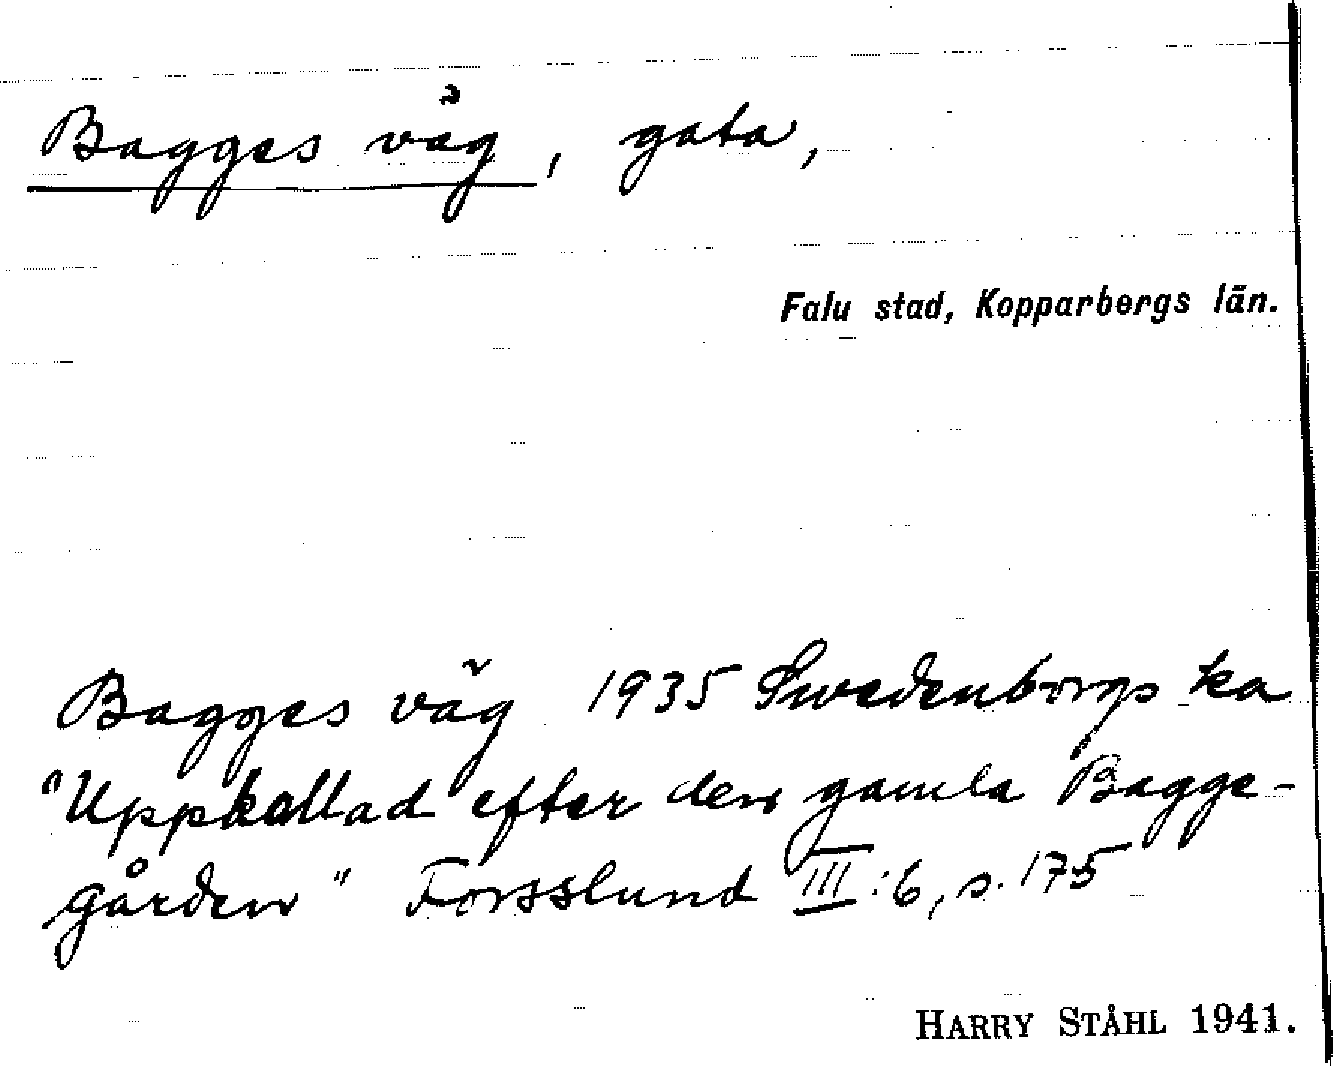 Bagges väg, gata,
Falu stad, Kopparbergs län.
Bagges väg 1935 Swedenborgs ka
"Uppkallad efter den gamla Bagge-
gården" Forsslund III:6, s. 175
HARRY STÅHL 1941.